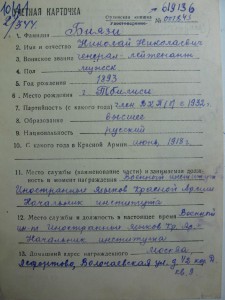 УЧЕТНАЯ КАРТОЧКА
№ 019136
№ 011245
1. Фамилия Биязи
2. Имя и отчество Николай Николаевич
3. Воинское звание генерал-лейтенант
4. Пол мужск
5. Год рождения 1893
6. Место рождения г. Тбилиси
7. Партийность (с какого года) член ВКП(б) с 1932 г.
8. Образование высшее
9. Национальность русский
10. С какого года в Красной Армии июнь 1918 г.
11. Место службы (наименование части) и занимаемая должность в момент награждения Военный институт
Иностранных языков Красной Армии
Начальник института
12. Место службы и должность в настоящее время Военный
ин-т Иностранных языков Кр. Ар.
Начальник института
13. Домашний адрес награжденного Москва,
Лефортово, Волочаевская ул. д.
кв. 9